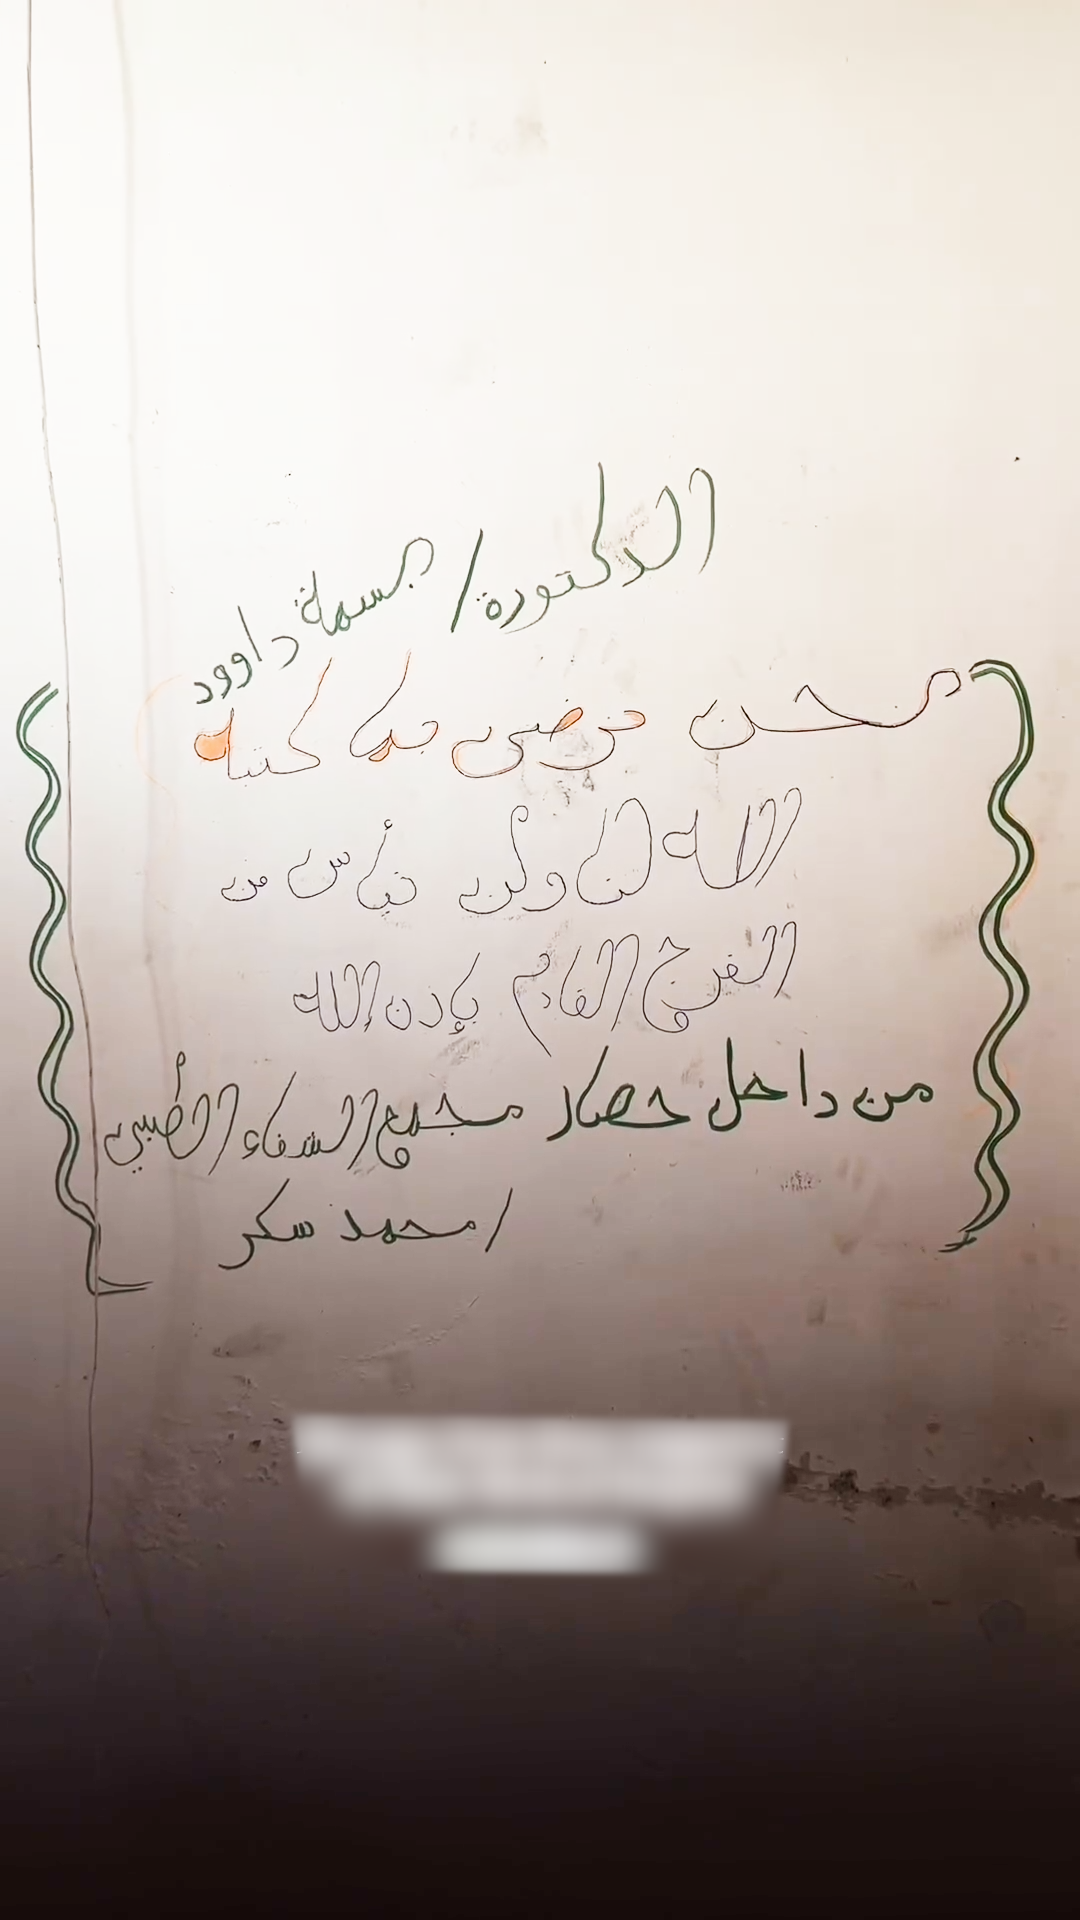 الدكتورة/ بسمة داوود
نحن نرضى بما كتبه
الله لنا ولن نيأس من
الفرج القادم بإذن الله
من داخل حصار مجمع الشفاء الطبي
/محمد سكر